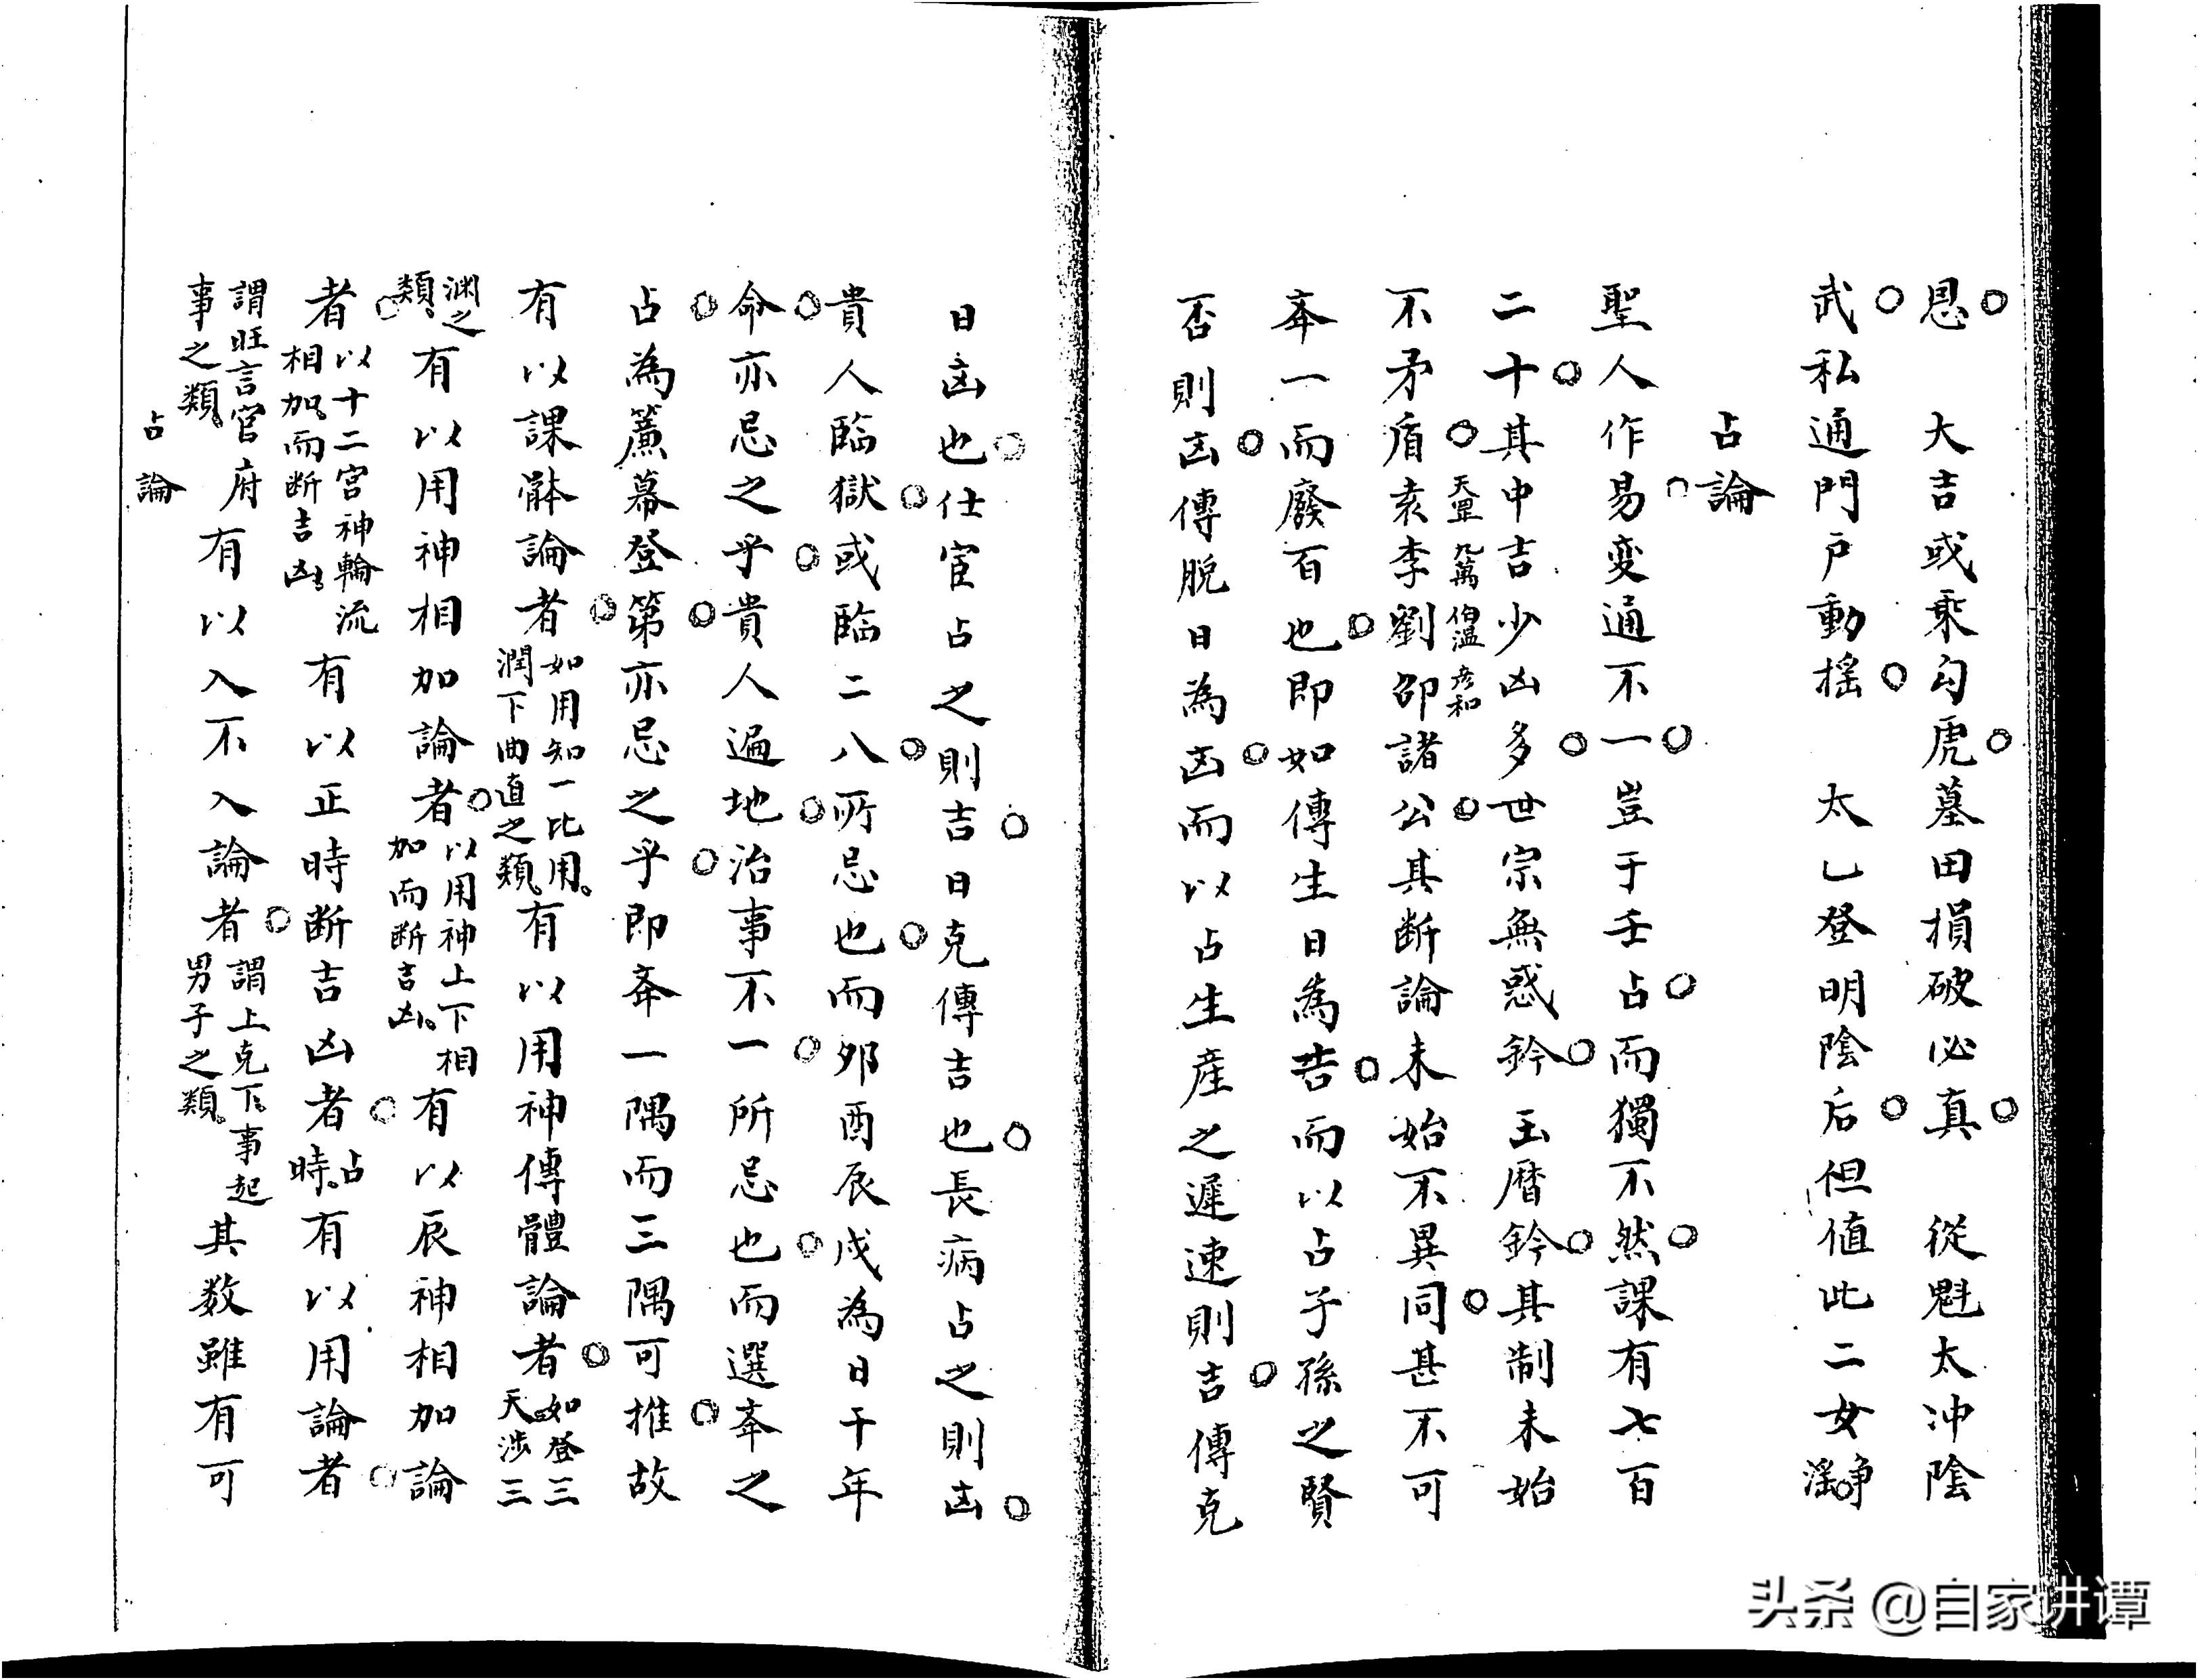 恩　大吉或乘勾虎墓田損破必真　從魁太冲陰
武私通門戶動搖　太乙登明陰后但值此二女淫
占論
聖人作易変通不一豈于壬占而獨不然課有七百
二十其中吉少凶多世宗無惑鈐玉曆鈐其制未始
不矛盾袁天罡李九萬劉伯温邵彦和諸公其断論未始不異同甚不可
夲一而廢百也即如傳生日為吉而以占子孫之賢
否則凶傳脫日為凶而以占生産之遲速則吉傳克
日凶也仕宦占之則吉日克傳吉也長病占之則凶
貴人臨獄或臨二八所忌也而夘酉辰戌為日干年
命亦忌之乎貴人遍地治事不一所忌也而選夲之
占為簾幕登第亦忌之乎即夲一隅而三隅可推故
有以課體論者如用知一比用潤下曲直之類有以用神傳體論者如登三天涉三
渊之類有以用神相加論者以用神上下相加而断吉凶有以辰神相加論
者以十二宫神輪流相加而断吉凶有以正時断吉凶者占時有以用論者
謂旺言官府事之類有以入不入論者謂上克下事起男子之類其数雖有可
占論
头条 @自家讲谭